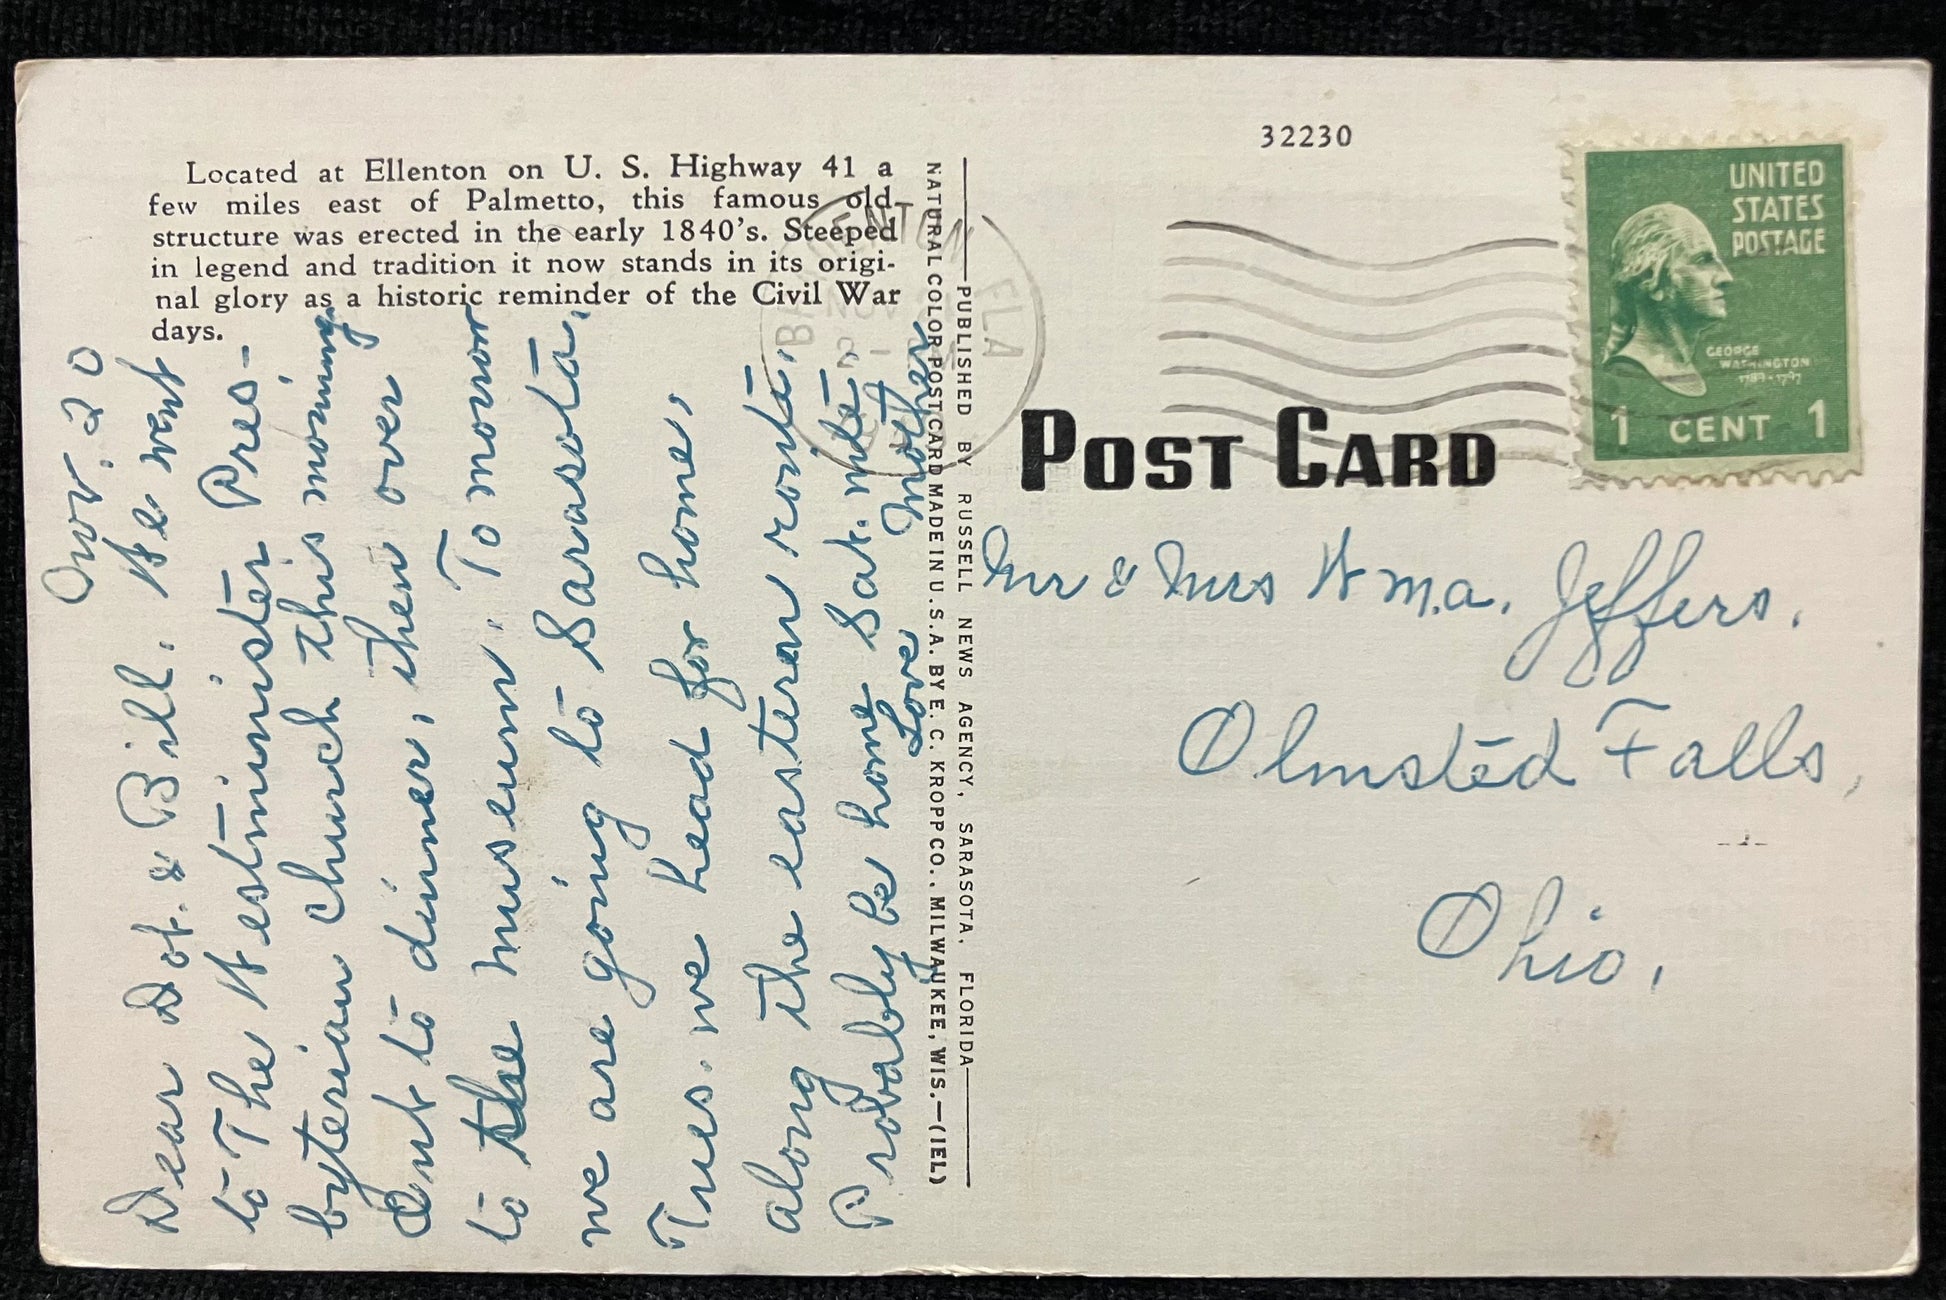 32230
UNITED
STATES
POSTAGE
GEORGE
WASHINGTON
1789-1797
1 CENT 1
Located at Ellenton on U. S. Highway 41 a
few miles east of Palmetto, this famous old
structure was erected in the early 1840's. Steeped
in legend and tradition it now stands in its origi-
nal glory as a historic reminder of the Civil War
days.
BRADENTON FLA
NOV
1
Nov. 20
Dear Dot. & Bill. We went
to The Westminister Pres-
byterian church this morning
Out to dinner, then over
to the museum. Tomorrow
we are going to Sarasota,
Tues. we head for home,
along the eastern route,
Probably be home Sat. nite
Love, Mother
NATURAL COLOR POST CARD MADE IN U.S.A. BY E. C. KROPP CO., MILWAUKEE, WIS.—(IEL)
PUBLISHED BY RUSSELL NEWS AGENCY, SARASOTA, FLORIDA
POST CARD
Mr & Mrs Wm.a. Jeffers.
Olmsted Falls,
Ohio.